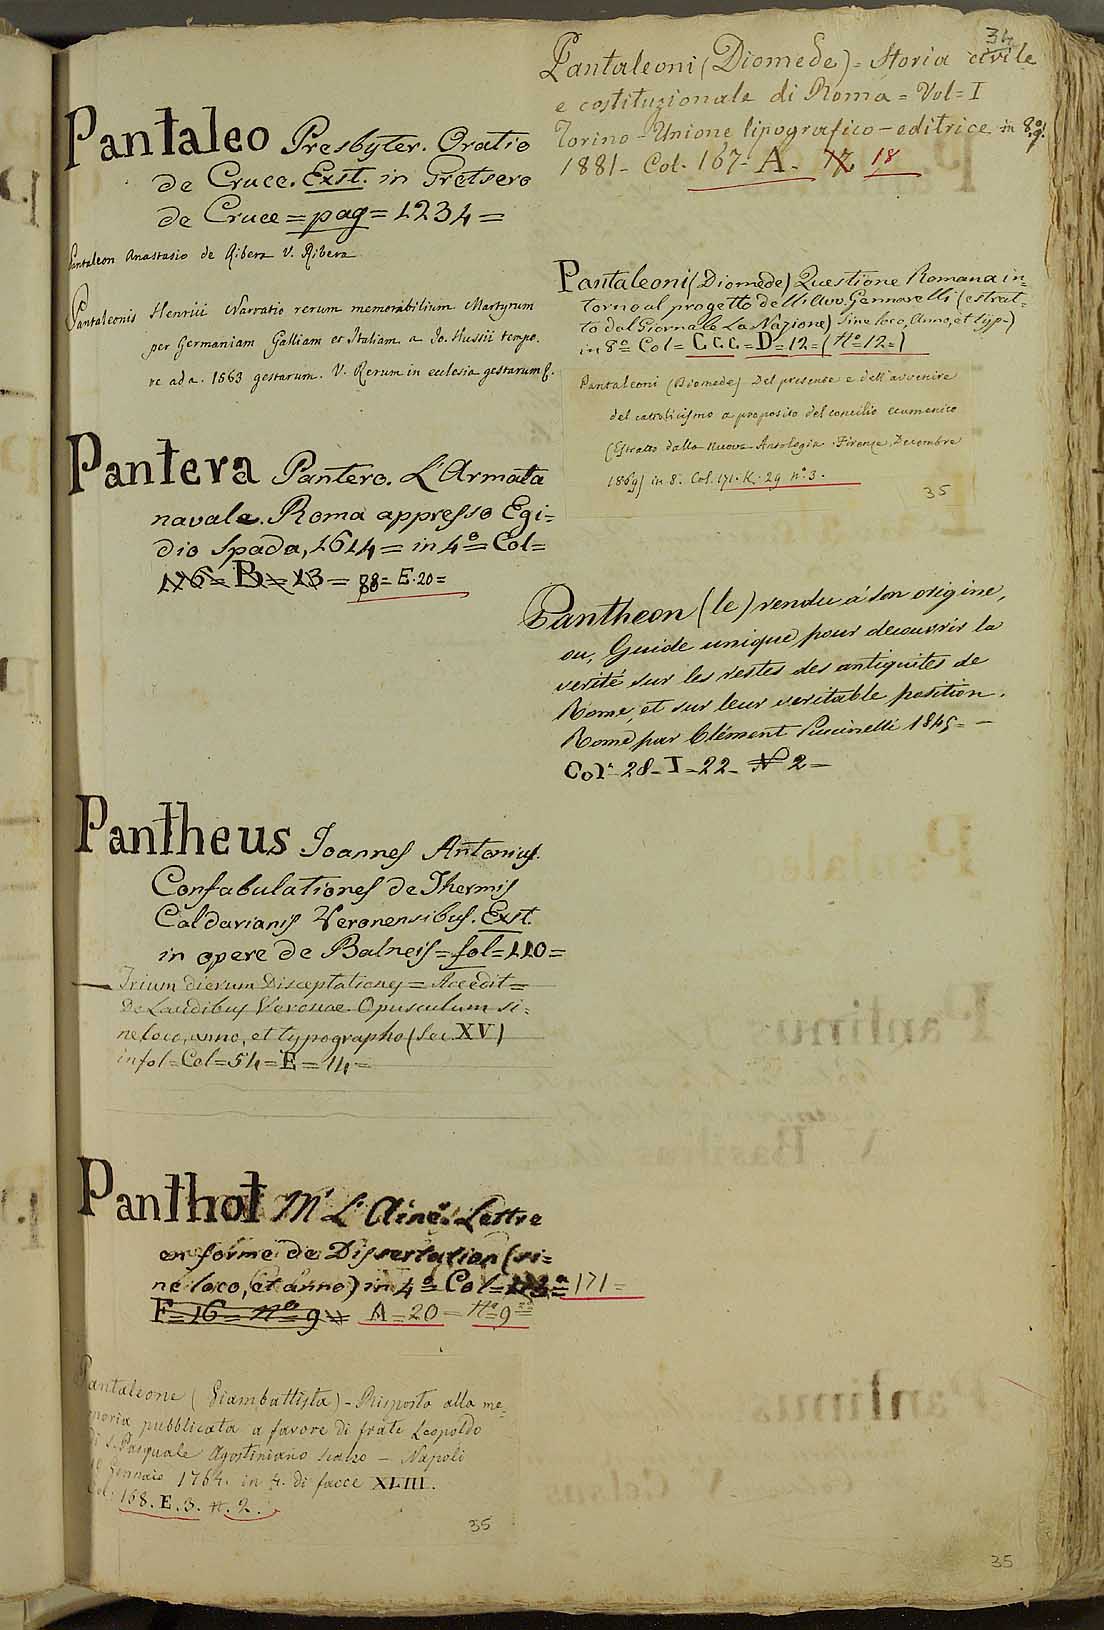 Pantaleo Presbyter. Oratio
de Cruce. Exst. in Gretsero
de Cruce = pag = 1234 =
Pantaleon Anastasio de Ribera V. Ribera
Pantaleonis Henrici Narratio rerum memorabilium Martyrum
per Germaniam Galliam et Italiam a Jo. Hussii tempo.
re ad a. 1563 gestarum. V. Rerum in ecclesia gestarum &.
Pantera Pantero. L'Armata
navale. Roma appresso Egi=
dio Spada, 1614 = in 4º = Col=
116 = B = 13 = 88 = E. 20 =
Pantheus Joannes Antonius.
Confabulationes de Thermis
Caldarianis Veronensibus. Exst.
in opere de Balneis = fol = 110 =
Trium dierum Disceptationes = Accedit =
De Laudibus Veronae Opusculum si=
ne loco, anno, et typographo (Sec. XV)
in fol = Col = 54 = E = 14 =
Panthot Mr L'Ainé. Lettre
en forme de Dissertation (si=
ne loco, et anno) in 4º = Col = 171 =
F = 16 = nº 9 = A = 20 = Nº 9
Pantaleone (Giambattista) - Risposta alla me=
moria pubblicata a favore di frate Leopoldo
di S. Pasquale Agostiniano scalzo - Napoli
Gennaio 1764. in 4. di facce XLIII.
Col. 168. E. 3. n. 2.
35
34
Pantaleoni (Diomede) = Storia civile
e costituzionale di Roma = Vol = I
Torino - Unione tipografico - editrice in 8º g.
1881 - Col. 167 - A - 17 18
Pantaleoni (Diomede) Questione Romana in=
torno al progetto dell'Avv. Gennarelli (estrat=
to dal Giornale La Nazione) sine loco, anno, et typ=)
in 8º Col = CCC = D = 12 = (Nº 12 =)
Pantaleoni (Diomede) Del presente e dell'avvenire
del cattolicismo a proposito del concilio ecumenico
(Estratto dalla Nuova Antologia. Firenze, Decembre
1869) in 8. Col. 171. K. 29 nº 3.
35
Pantheon (le) rendu à son origine,
ou, Guide unique, pour decouvrir la
verité sur les restes des antiquités de
Rome, et sur leur veritable position.
Rome par Clément Puccinelli 1845 = -
Col. 28 - I - 22 - Nº 2 -
35